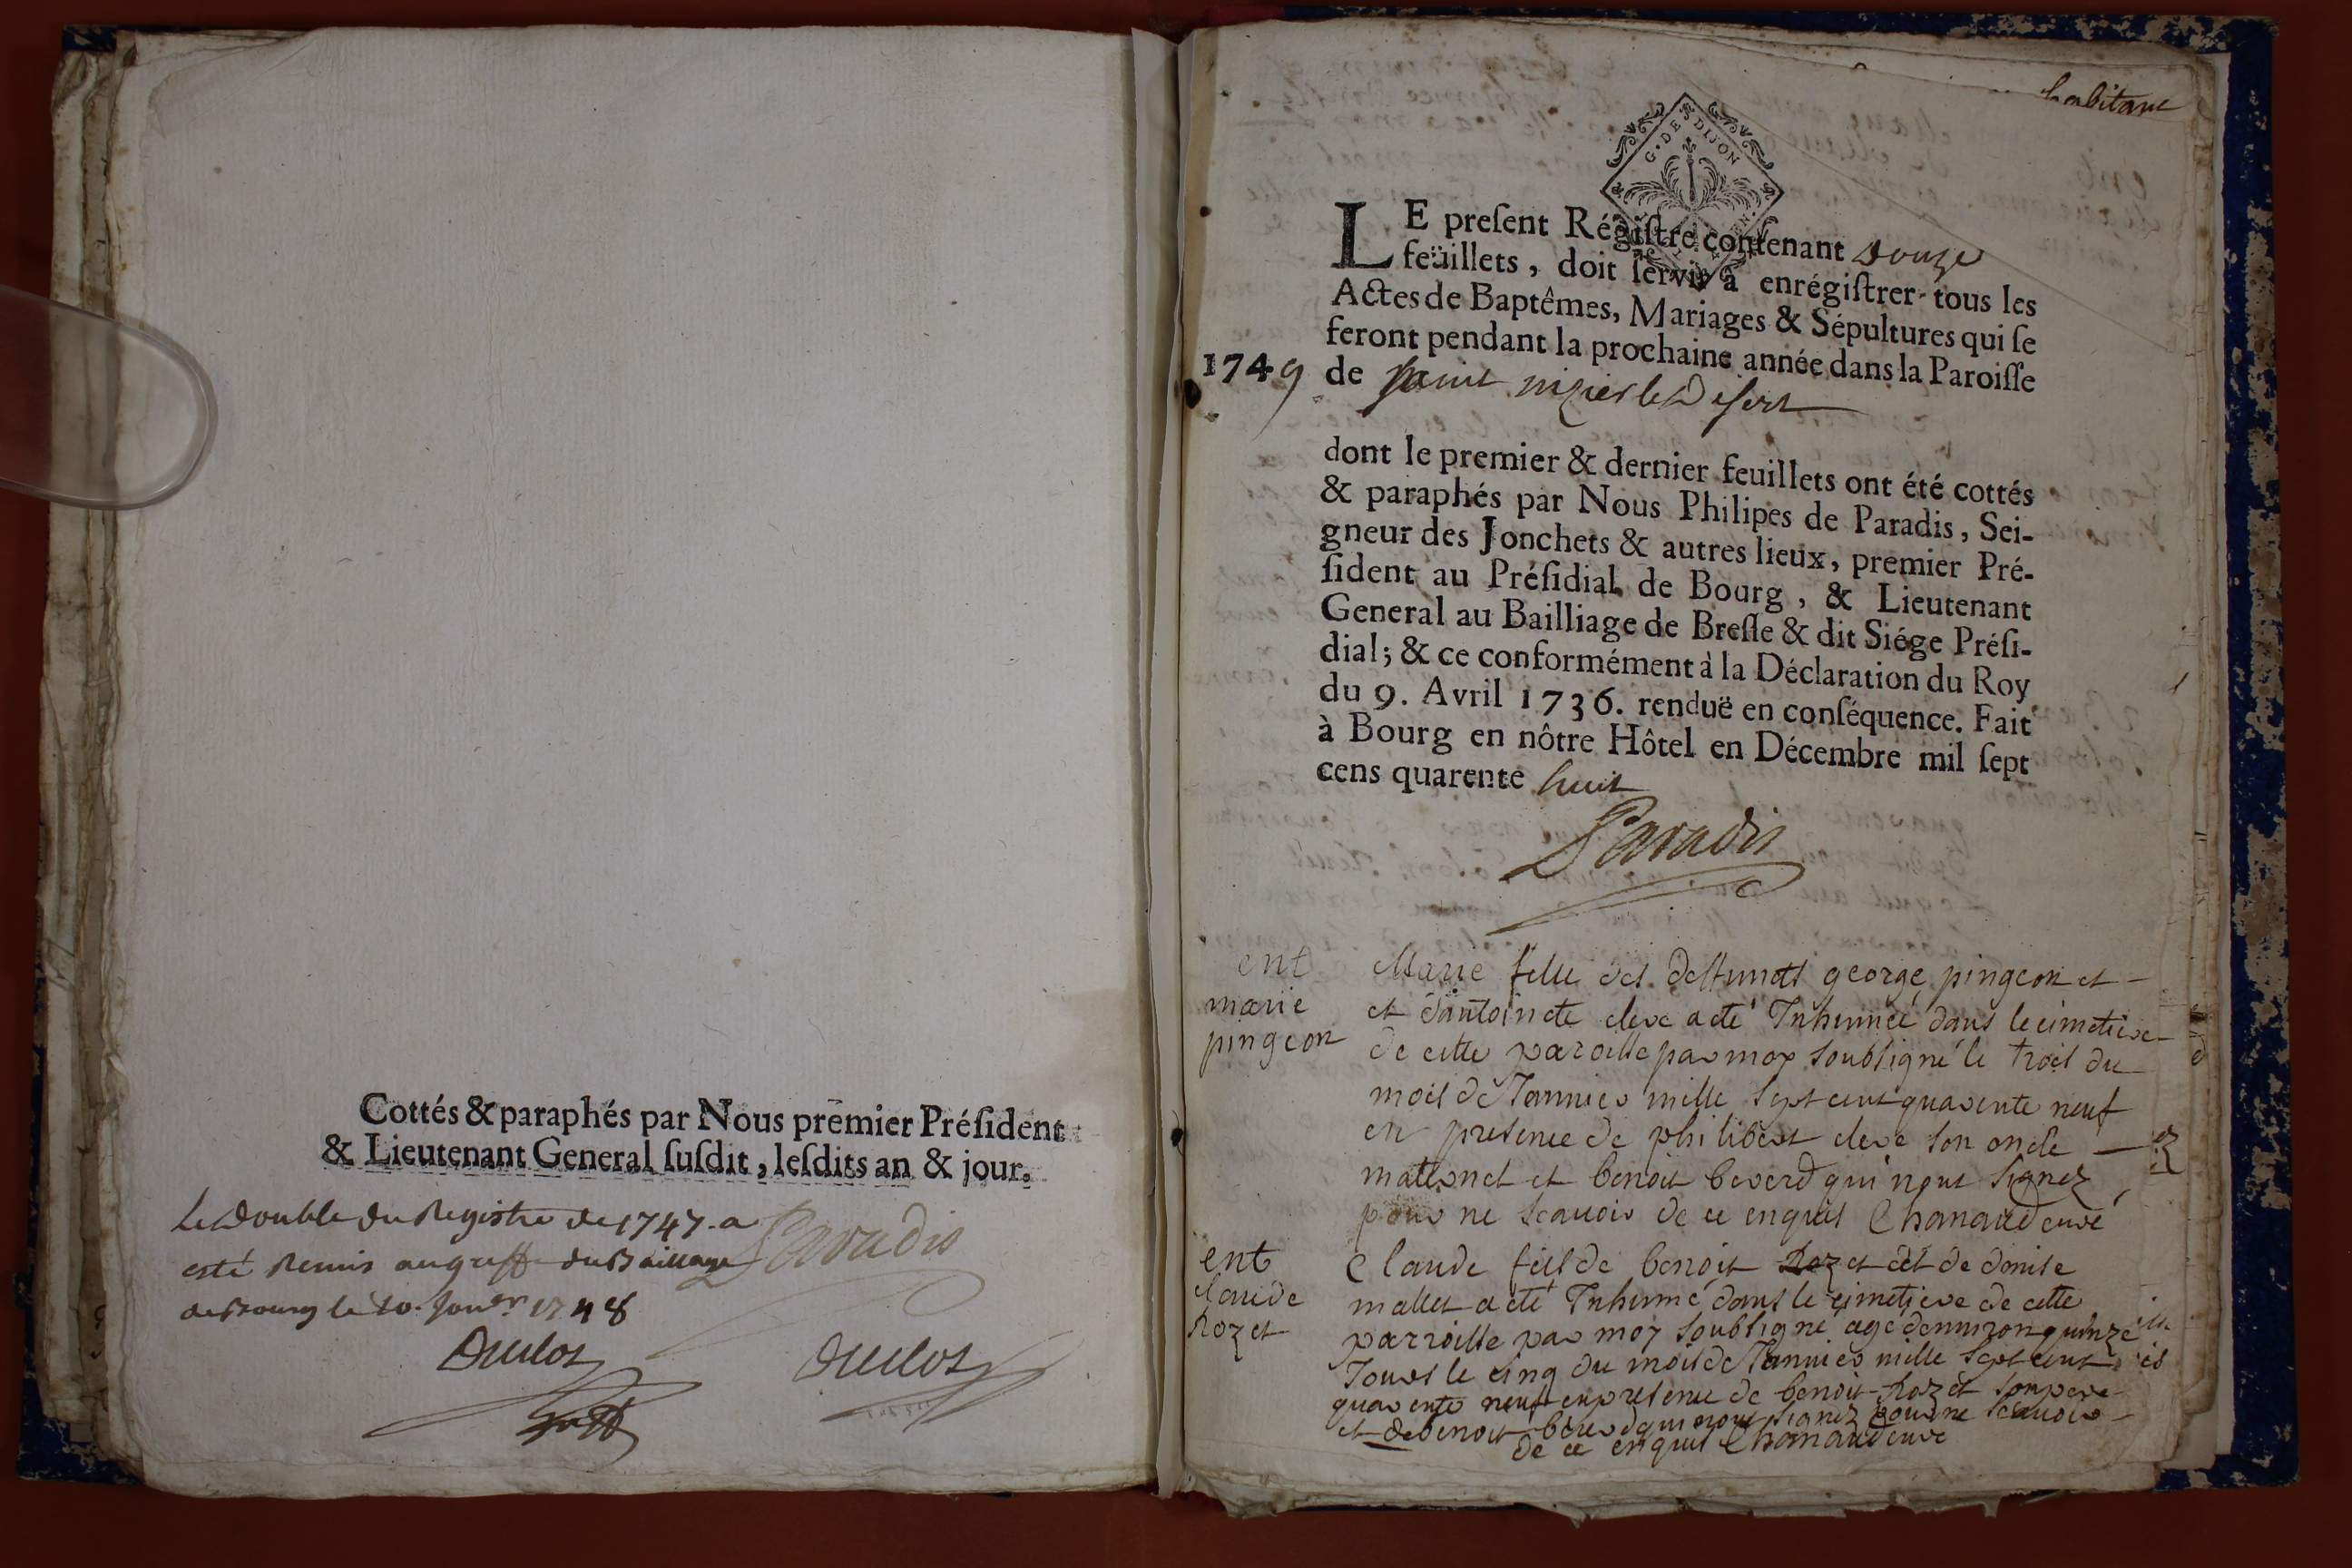 Cottés & paraphés par Nous premier Préſident
& Lieutenant General ſuſdit, leſdits an & jour.
Le double du Registre de 1747. a
esté Remis au greffe du Baillage
de Bourg le 10. Janer 1748
Paradis
Duclos
Duclos
habitant
G. DE DIJON
LE preſent Régiſtre contenant douze
feüillets, doit ſervir à enrégiſtrer tous les
Actes de Baptêmes, Mariages & Sépultures qui ſe
feront pendant la prochaine année dans la Paroiſſe
1749 de saint nizier le Desert
dont le premier & dernier feuillets ont été cottés
& paraphés par Nous Philipes de Paradis, Sei-
gneur des Jonchets & autres lieux, premier Pré-
ſident au Préſidial de Bourg, & Lieutenant
General au Bailliage de Breſſe & dit Siége Préſi-
dial; & ce conformément à la Déclaration du Roy
du 9. Avril 1736. renduë en conſéquence. Fait
à Bourg en nôtre Hôtel en Décembre mil ſept
cens quarente huit
Paradis
ent
marie
pingeon
Marie fille des deffunts george pingeon et
et d'antoinete clere a eté Inhumée dans le cimetiere
de cette paroisse par moy soubsigné le trois du
mois de Janvier mille sept cent quarente neuf
en presence de philibert clere son oncle
mattonet et benoit beverd qui n'ont signez
pour ne scavoir de ce enquis Chanaud curé
ent
claude
rozet
Claude fils de benoit Rozet et de denise
mallet a eté Inhumé dans le cimetiere de cette
parroisse par moy soubsigné agé d'environ quinze
Jours le cinq du mois de Janvier mille sept cent
quarente neuf en presence de benoit Rozet son pere
et de benoit beverd qui n'ont signez pour ne scavoir
de ce enquis Chanaud curé